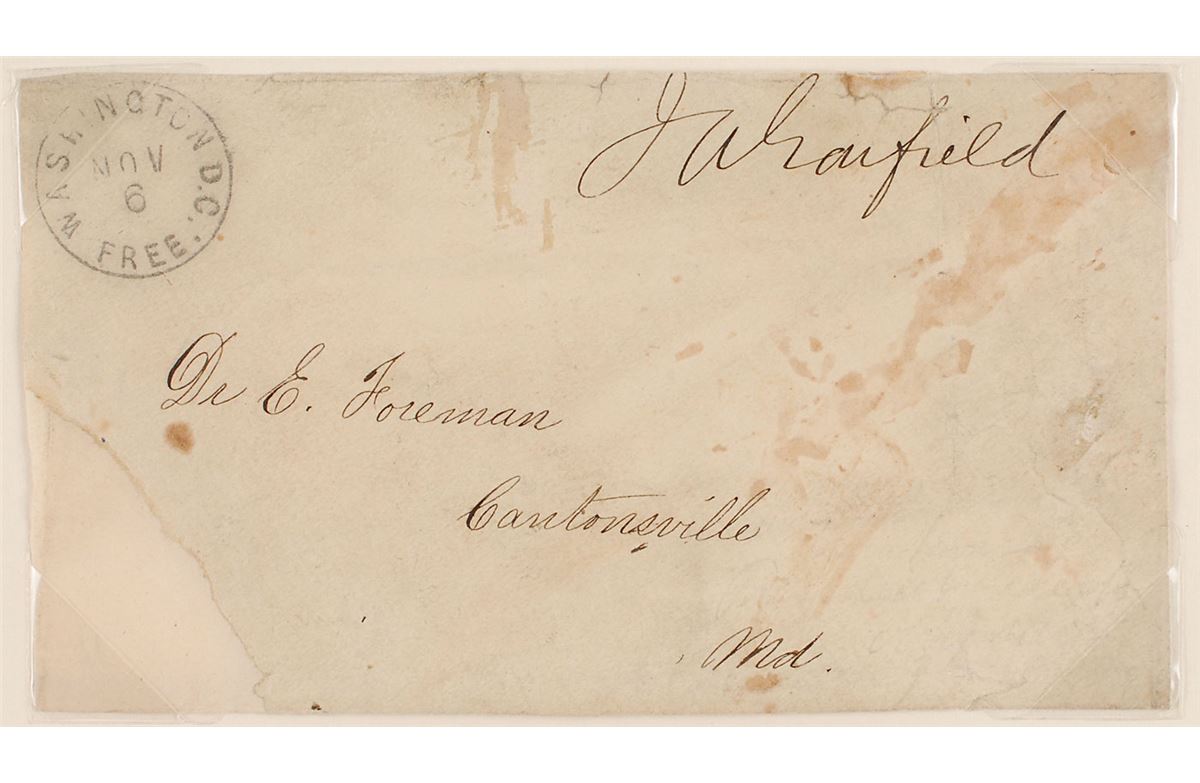 WASHINGTON D.C.
NOV
6
FREE.
J A Garfield
Dr E. Foreman
Cantonsville
Md.